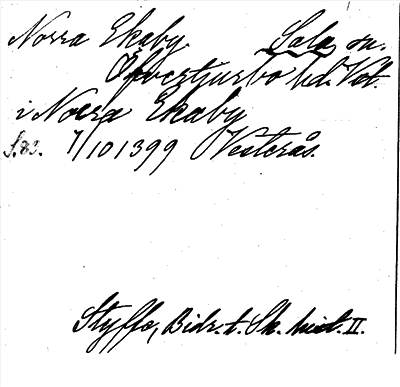 Norra Ekaby Sala, sn.
Öfvertjurbo hd. Vstm.
i Norra Ekaby
S. 83. 7/10 1399 Vesterås.
Styffe, Bidr. t. Sk. hist. II.